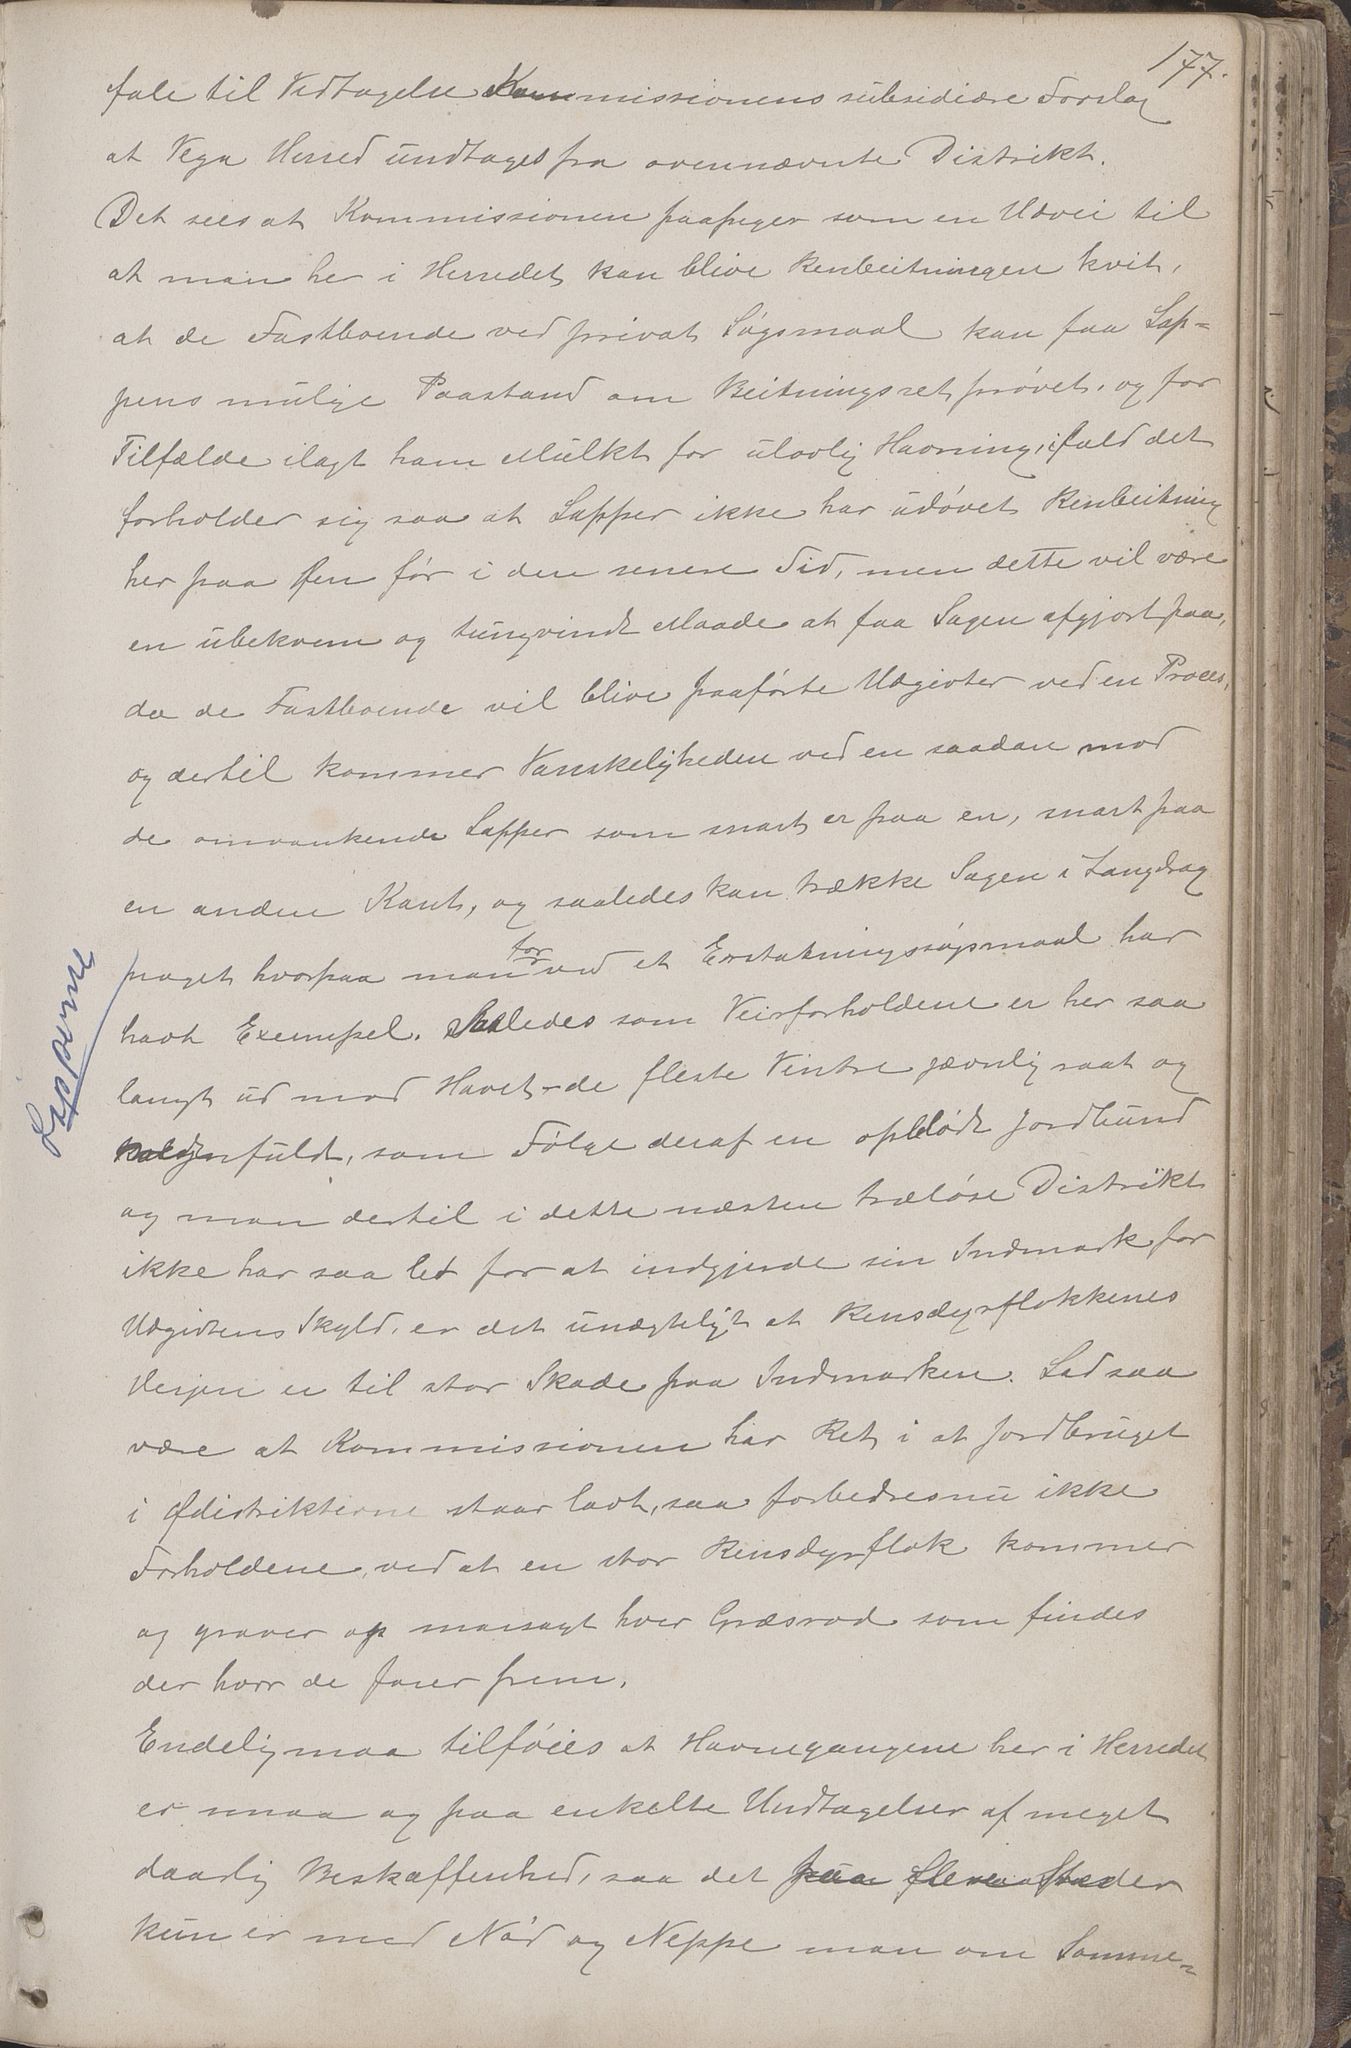 177.
fale til Vedtagelse Kommissionens subsidiære Forslag
at Vega Herred undtages fra ovennævnte Distrikt.
Det sees at Kommissionen paapeger som en Udvei til
at man her i Herredet kan blive Renbeitningen kvit,
at de Fastboende ved privat Søgsmaal kan faa Lap-
pens mulige Paastand om Beitningsret prøvet, og for
Tilfælde ilagt ham Mulkt for ulovlig Havning, ifald det
forholder sig saa at Lapper ikke har udøvet Renbeitning
her paa Øen før i den senere Tid, men dette vil være
en ubekvem og tungvindt Maade at faa Sagen afgjort paa,
da de Fastboende vil blive paaførte Udgivter ved en Proces,
og dertil kommer Vanskeligheden ved en saadan mod
de omvankende Lapper som snart er paa en, snart paa
en anden Kant, og saaledes kan trække Sagen i Langdrag
noget hvorpaa man for ved et Erstatningssøgsmaal har
havt Exempel. Saaledes som Veirforholdene er her saa
langt ud mod Havet – de fleste Vintre jævnlig raat og
fuldt, som Følge deraf en opblødt Jordbund
og man dertil i dette næsten træløse Distrikt
ikke har saa let for at indgjerde sin Indmark for
Udgivtens Skyld, er det unægteligt at Rensdyrflokkenes
Herjen er til stor Skade paa Indmarken. Lad saa
være at Kommissionen har Ret i at Jordbruget
i Ødistrikterne staar lavt, saa forbedres nu ikke
Forholdene, ved at en stor Rensdyrflok kommer
og graver op maasagt hver Græsrod som findes
der hvor de farer frem.
Endelig maa tilføies at Havnegangene her i Herredet
er smaa og paa enkelte Undtagelser af meget
daarlig Beskaffenhed, saa det paa flere Stæder
kun er med Nød og Neppe man om Somme-
Lapperne